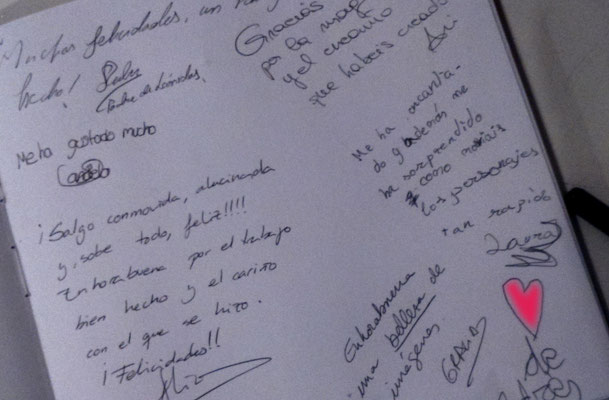 Muchas felicidades, un
hecho!
Pedro
Me ha gustado mucho
¡Salgo conmovida, alucinada
y, sobre todo, feliz!!!!
Enhorabuena por el trabajo
bien hecho y el cariño
con el que se hizo.
¡Felicidades!!
Gracias
por la magia
y el encanto
que habéis creado
Me ha encanta-
do y además me
ha sorprendido
como
los personajes
tan rápido
Laura
Enhorabuena
una belleza de
imágenes.
GRACIAS